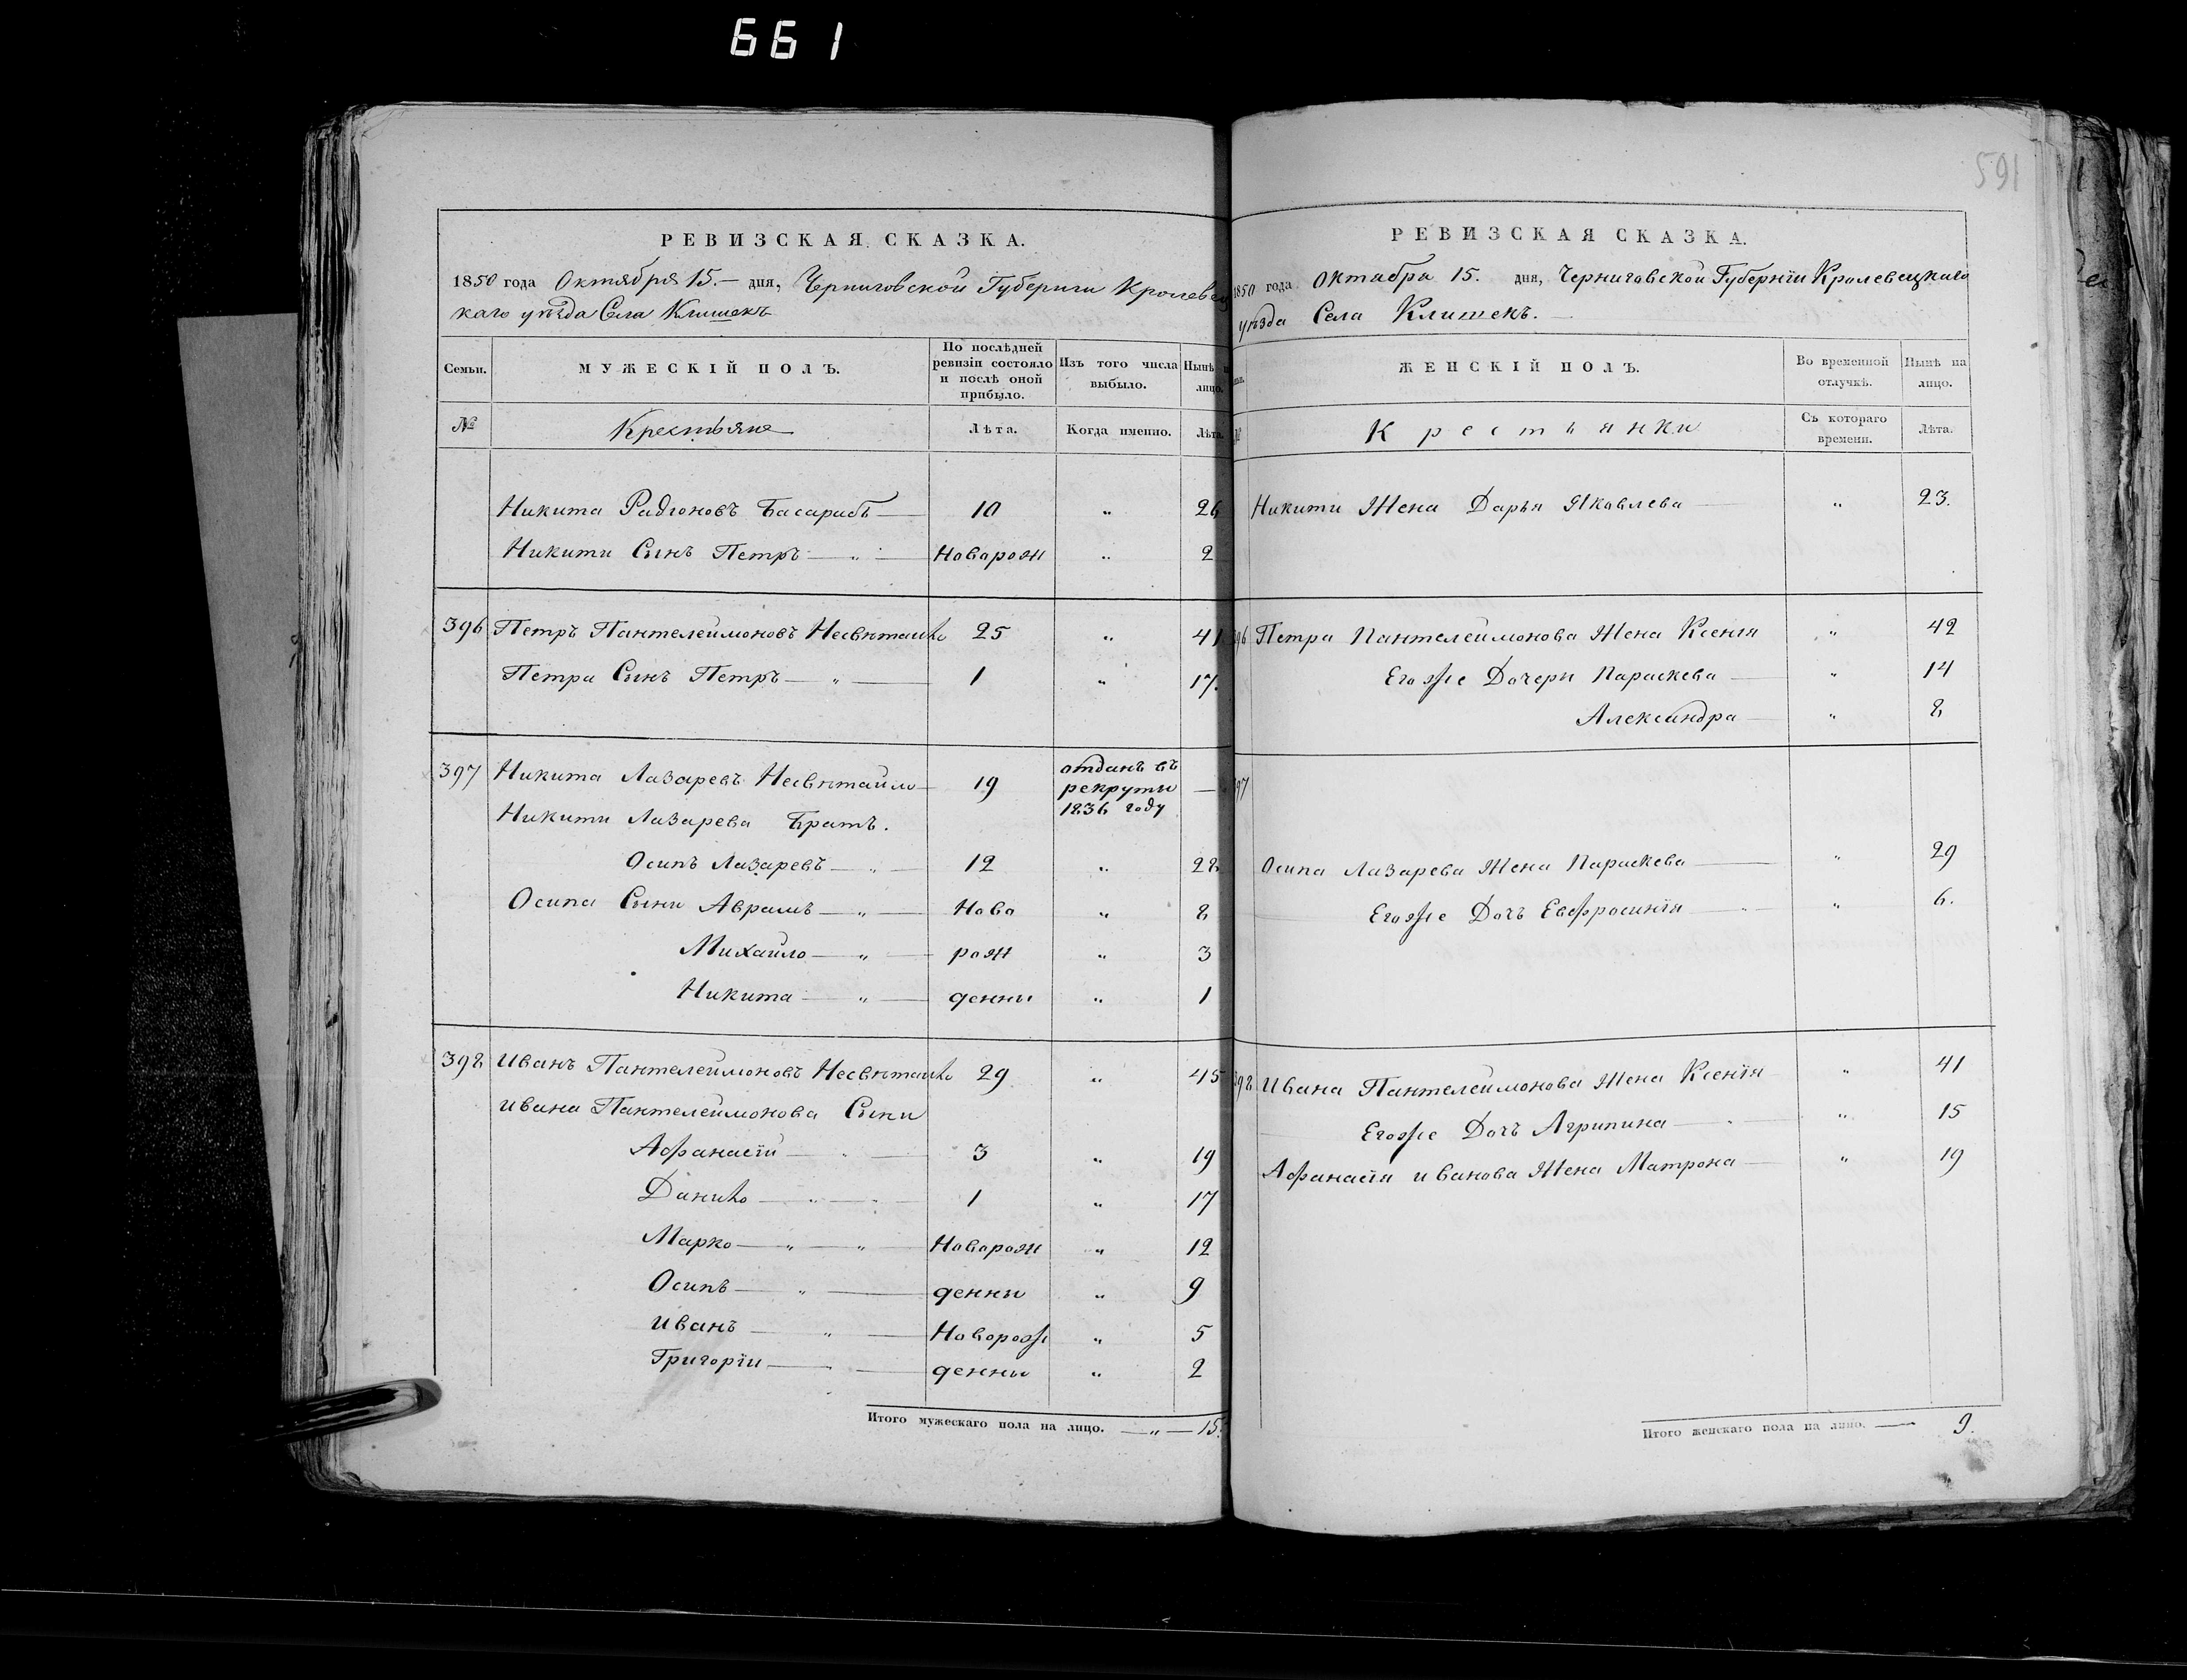 661
РЕВИЗСКАЯ СКАЗКА.
1850 года Октября 15.— дня, Черниговской Губернии Кролевец
каго уѣзда Села Клишекъ
Семьи. МУЖЕСКІЙ ПОЛЪ. По послѣдней ревизіи состояло и послѣ оной прибыло. Изъ того числа выбыло. Нынѣ н лицо.
№ Крестьяне Лѣта. Когда именно. Лѣта.
Никита Радіоновъ Басарабъ — 10 " 26
Никити Сынъ Петръ — " — Наворож " 2
396 Петръ Пантелеймоновъ Несвѣтайло 25 " 41
Петра Сынъ Петръ — " — 1 " 17.
397 Никита Лазаревъ Несвѣтайло — 19 отданъ въ рекруты 1836 году —
Никити Лазарева Братъ.
Осипъ Лазаревъ — " — 12 " 28
Осипа Сыни Аврамъ — " — Наво " 8
Михайло — " — рож " 3
Никита — " — денни " 1
398 Иванъ Пантелеймоновъ Несвѣтайло 29 " 45
Ивана Пантелеймонова Сыни
Афанасій — " — 3 " 19
Данило — " — 1 " 17
Марко — " — " — Наворож " 12
Осипъ — " — денни " 9
Иванъ — " — Навороже " 5
Григорій — " — денны " 2
Итого мужескаго пола на лицо. — " — 15.
591
РЕВИЗСКАЯ СКАЗКА.
1850 года Октября 15. дня, Черниговской Губерніи Кролевецкаго
уѣзда Села Клишекъ. —
ЖЕНСКІЙ ПОЛЪ. Во временной отлучкѣ. Нынѣ на лицо.
№ Крестьянки Съ котораго времени. Лѣта.
Никити Жена Дарья Яковлева — " 23.
96 Петра Пантелеймонова Жена Ксенія " 42
Егоже Дочери Параскева — " 14
Александра — " 8
97
Осипа Лазарева Жена Параскева — " 29
Егоже Дочъ Евфросинія — " 6.
98 Ивана Пантелеймонова Жена Ксенія " 41
Егоже Дочъ Агрипина — " 15
Афанасія Иванова Жена Матрона — " 19
Итого женскаго пола на лицо. — 9.